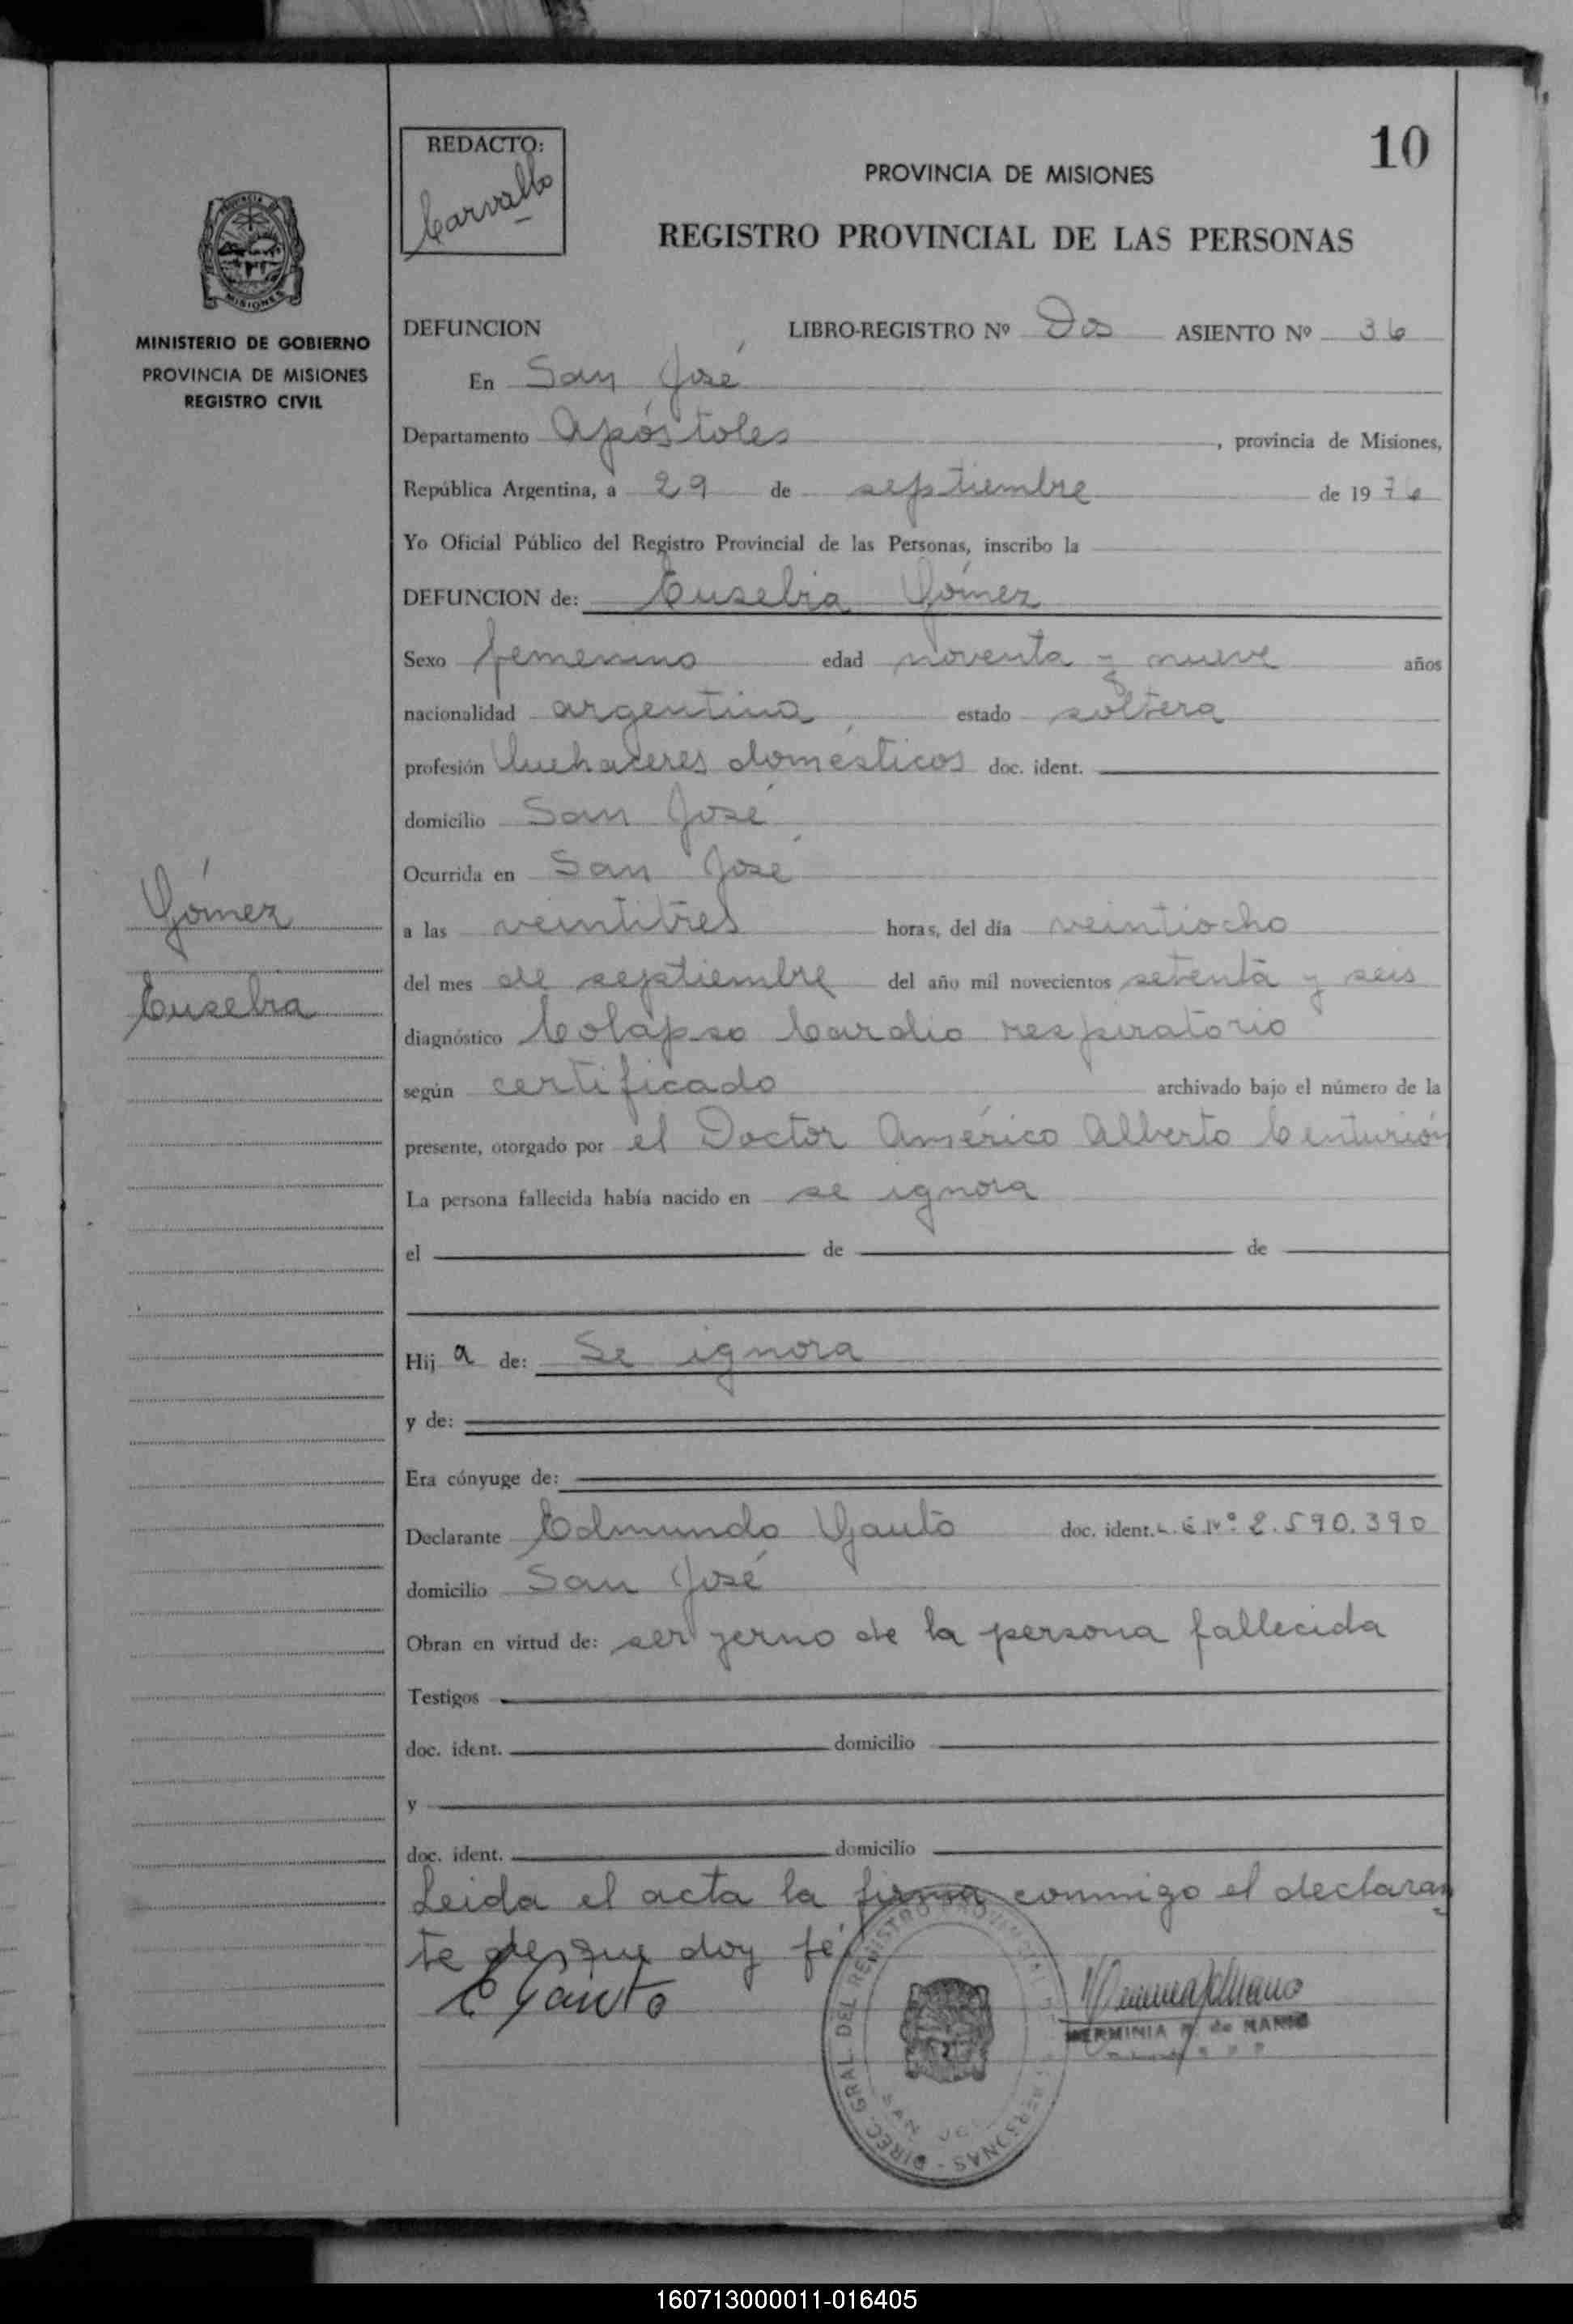 10
REDACTO:
Carvallo
PROVINCIA DE MISIONES
REGISTRO PROVINCIAL DE LAS PERSONAS
PROVINCIA DE
MISIONES
MINISTERIO DE GOBIERNO
PROVINCIA DE MISIONES
REGISTRO CIVIL
Gómez
Eusebia
DEFUNCION LIBRO-REGISTRO Nº Dos ASIENTO Nº 36
En San José
Departamento Apóstoles, provincia de Misiones,
República Argentina, a 29 de septiembre de 1976
Yo Oficial Público del Registro Provincial de las Personas, inscribo la
DEFUNCION de: Eusebia Gómez
Sexo femenino edad noventa y nueve años
nacionalidad argentina estado soltera
profesión Quehaceres domésticos doc. ident.
domicilio San José
Ocurrida en San José
a las veintitres horas, del día veintiocho
del mes de septiembre del año mil novecientos setenta y seis
diagnóstico Colapso Cardio respiratorio
según certificado archivado bajo el número de la
presente, otorgado por el Doctor Américo Alberto Centurión
La persona fallecida había nacido en se ignora
el de de
Hij a de: Se ignora
y de:
Era cónyuge de:
Declarante Edmundo Gauto doc. ident. L. E Nº 2.590.390
domicilio San José
Obran en virtud de: ser yerno de la persona fallecida
Testigos
doc. ident. domicilio
y
doc. ident. domicilio
Leida el acta la firma conmigo el declaran
te de que doy fé
E Gauto
DIREC. GRAL. DEL REGISTRO PROVINCIAL PERSONAS
SAN
HERMINIA de
160713000011-016405